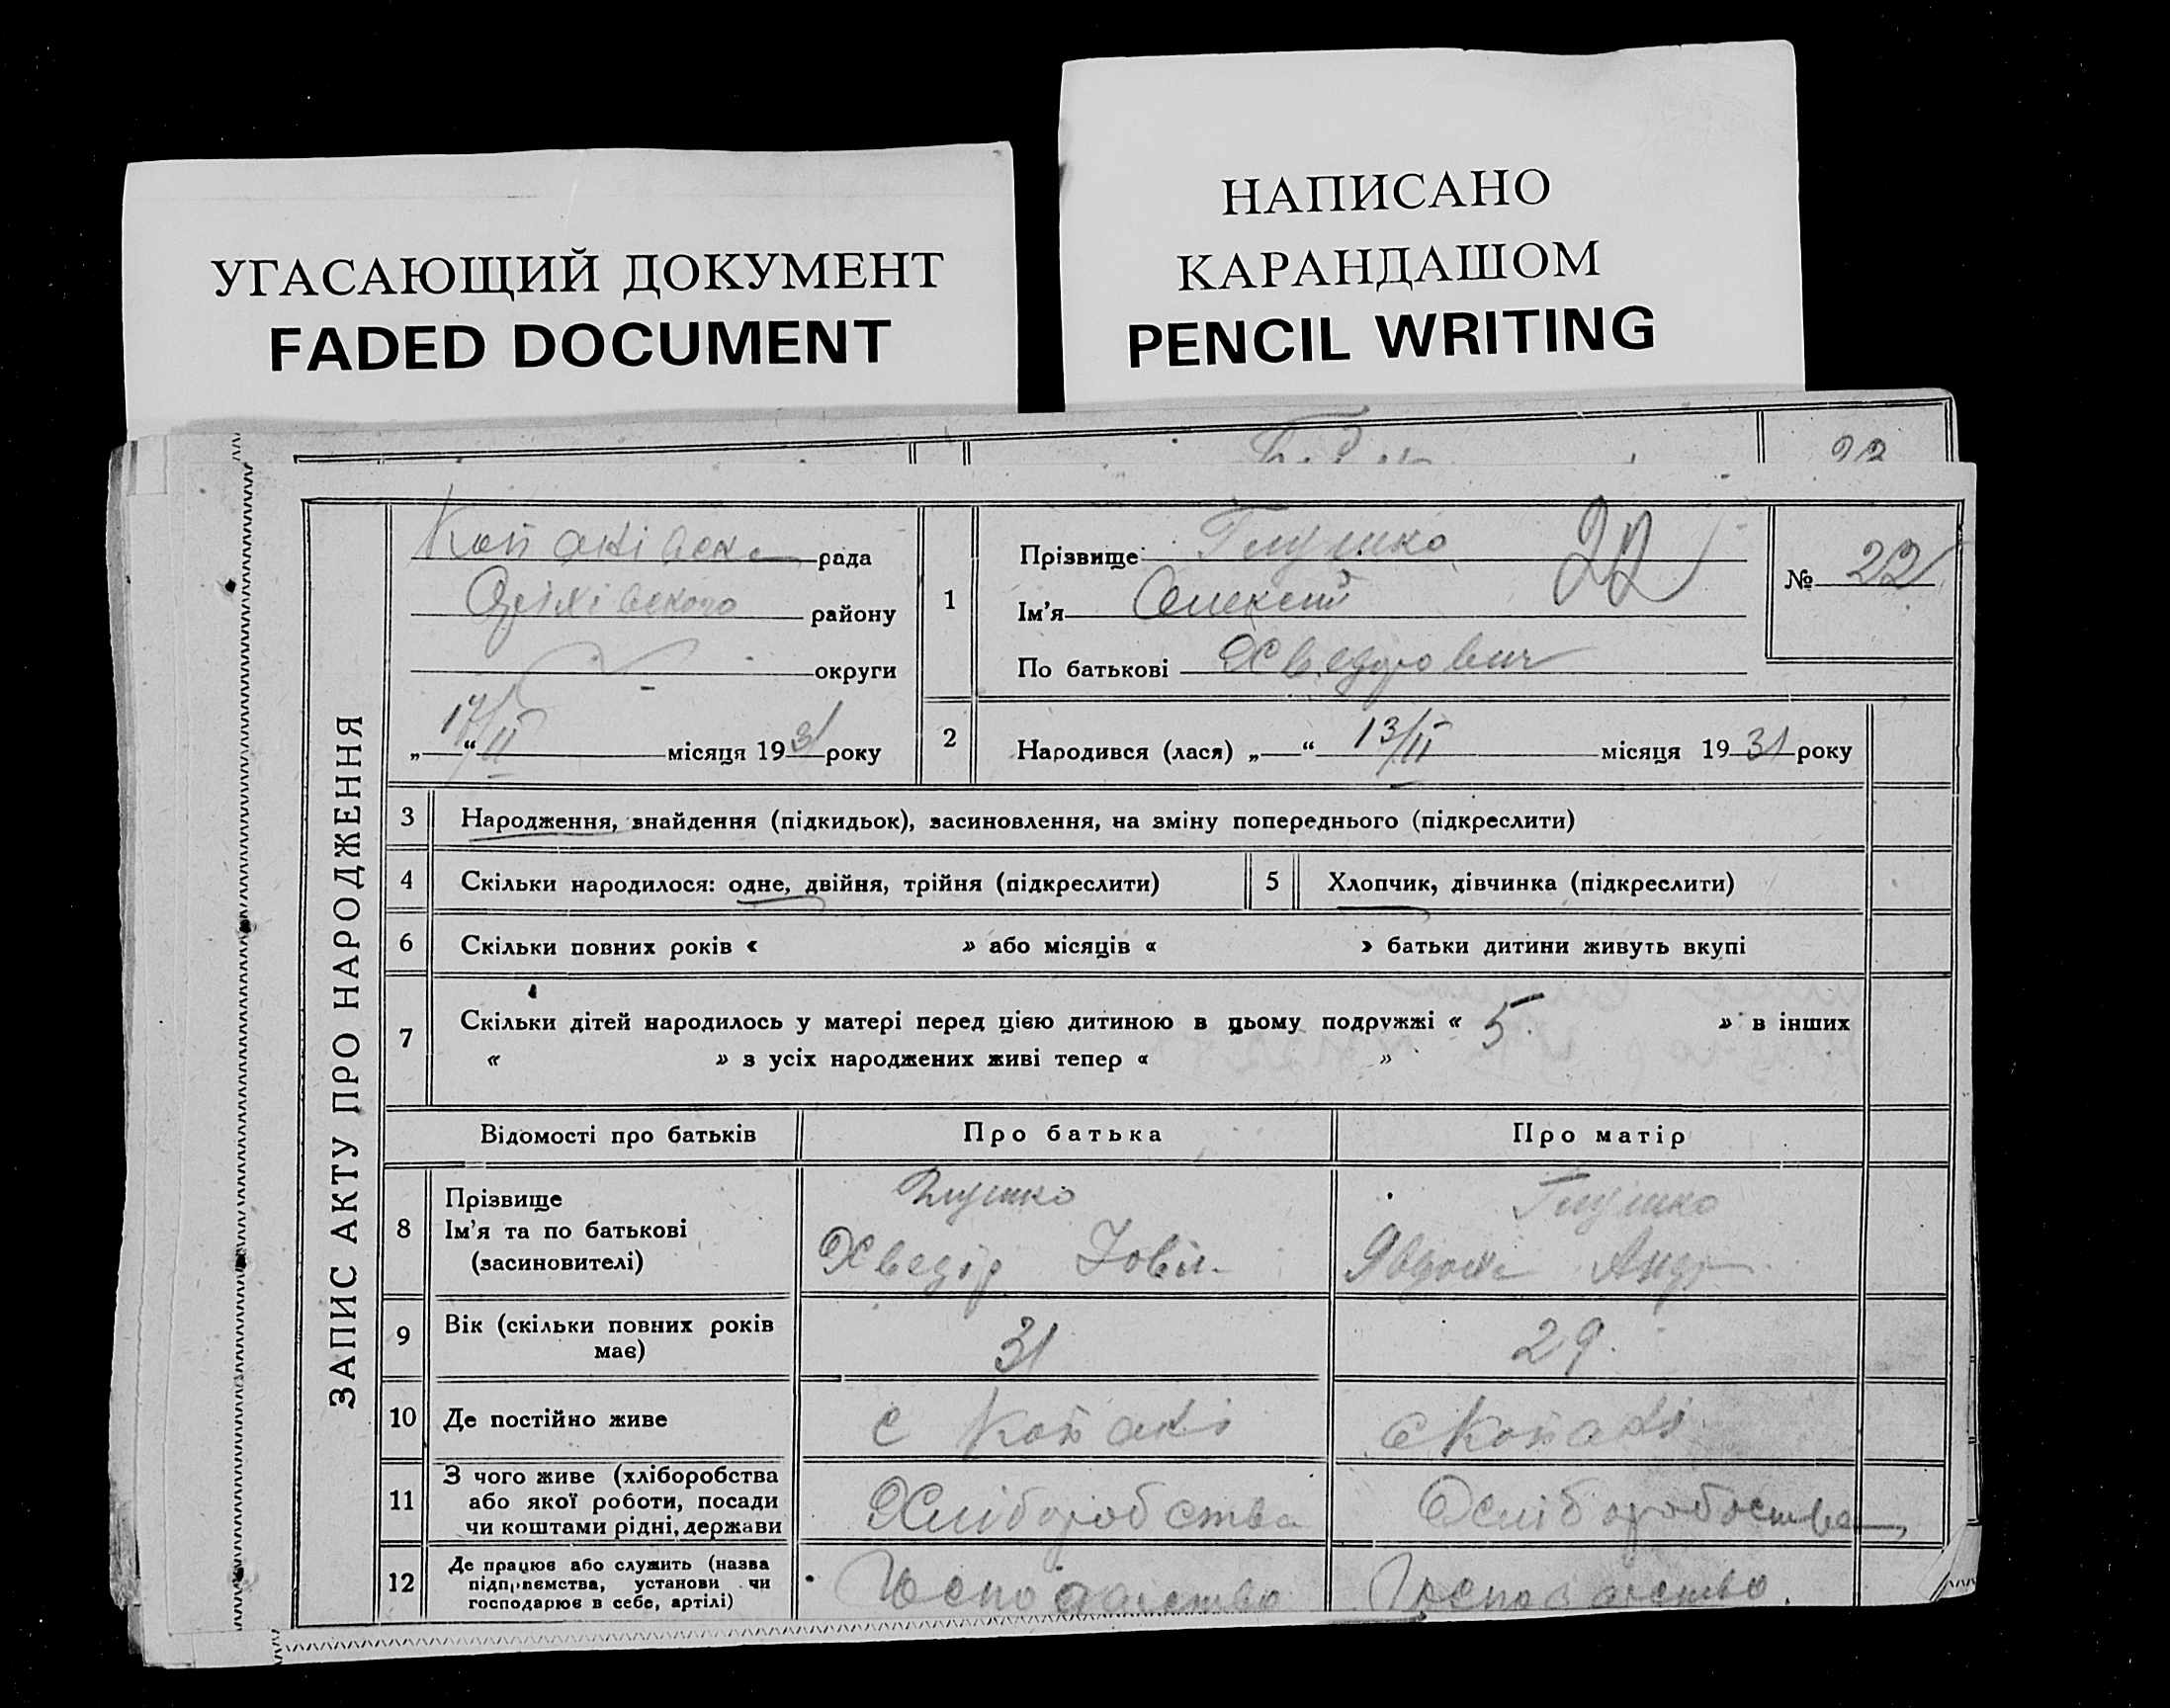 УГАСАЮЩИЙ ДОКУМЕНТ
FADED DOCUMENT
НАПИСАНО
КАРАНДАШОМ
PENCIL WRITING
22
ЗАПИС АКТУ ПРО НАРОДЖЕННЯ
Копаківська рада
Оріхівського району
округи
„17/II“ місяця 1931 року
1
Прізвище Глушко 22
Ім'я Олексій
По батькові Хведорович
№ 22
2 Народився (лася) „ “ 13/II місяця 1931 року
3 Народження, знайдення (підкидьок), засиновлення, на зміну попереднього (підкреслити)
4 Скільки народилося: одне, двійня, трійня (підкреслити) 5 Хлопчик, дівчинка (підкреслити)
6 Скільки повних років « » або місяців « » батьки дитини живуть вкупі
7 Скільки дітей народилось у матері перед цією дитиною в цьому подружжі « 5 » в інших
« » з усіх народжених живі тепер « »
Відомості про батьків Про батька Про матір
8 Прізвище Глушко Глушко
Ім'я та по батькові Хведір Явдоха Андр
(засиновителі)
9 Вік (скільки повних років має) 31 29.
10 Де постійно живе с Копакі с Копакі
11 З чого живе (хліборобства
або якої роботи, посади
чи коштами рідні, держави Хліборобства Хліборобоства
12 Де працює або служить (назва
підприємства, установи чи
господарює в себе, артілі) Господарство Господарство.